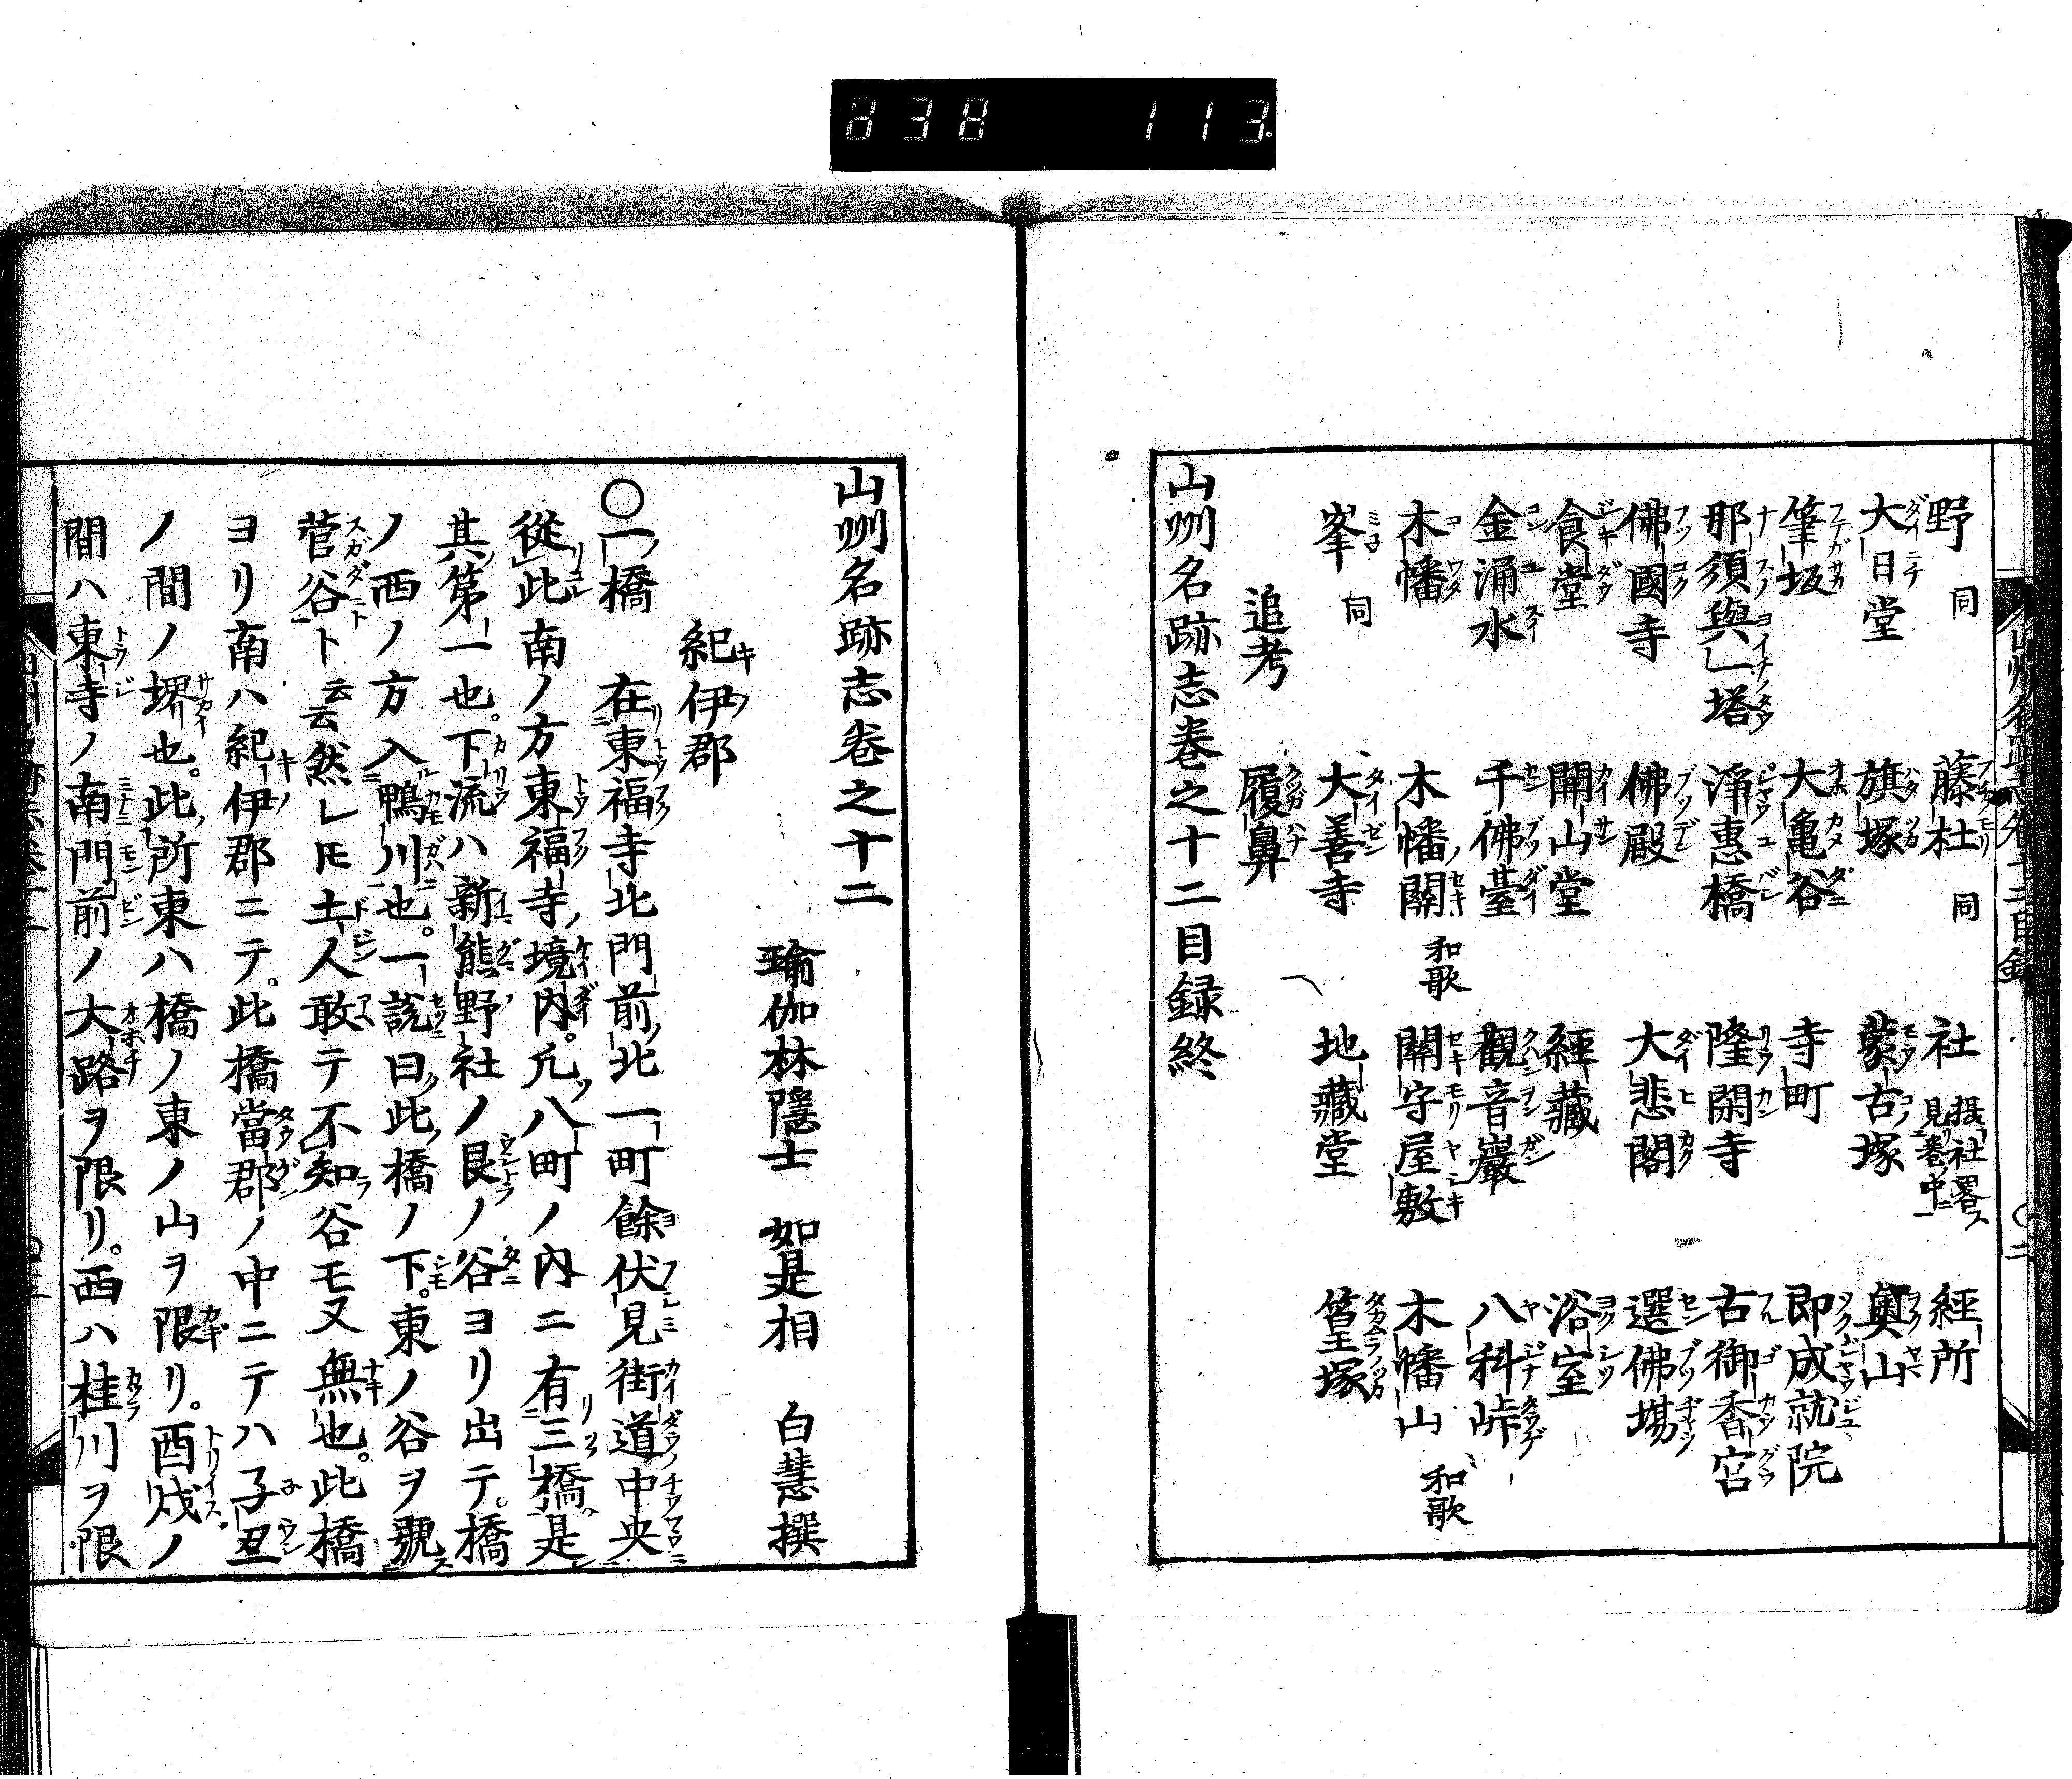 838 113
野 同 藤杜 同 社 摂社畧ス見巻中 經所
大日堂 旗塚 蒙古塚 奥山
筆坂 大亀谷 寺町 即成就院
那須與一塔 淨惠橋 隆閑寺 古御香宮
佛國寺 佛殿 大悲閣 選佛場
食堂 開山堂 經藏 浴室
金涌水 千佛臺 觀音巖 八科峠
木幡 木幡關 和歌 關守屋敷 木幡山 和歌
峯 同 大善寺 地藏堂 篁塚
追考 履鼻
山州名跡志巻之十二目録終
山州名跡志巻之十二
瑜伽林隱士 如是相 白慧撰
紀伊郡
〇一橋 在東福寺北門前北一町餘伏見街道中央
從此南ノ方東福寺境内。凡八町ノ内ニ有三橋。是
其第一也。下流ハ新熊野社ノ艮ノ谷ヨリ出テ。橋
ノ西ノ方入鴨川也。一説曰此橋ノ下。東ノ谷ヲ號
菅谷ト云云然レ𪜈土人敢テ不知谷モ又無也。此橋
ヨリ南ハ紀伊郡ニテ。此橋當郡ノ中ニテハ子丑
ノ間ノ堺也。此所東ハ橋ノ東ノ山ヲ限リ。酉戌ノ
間ハ東寺ノ南門前ノ大路ヲ限リ。西ハ桂川ヲ限